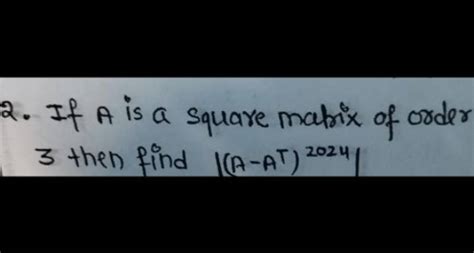 2. If A is a square matrix of order
3 then find |(A-Aᵀ)²⁰²⁴|